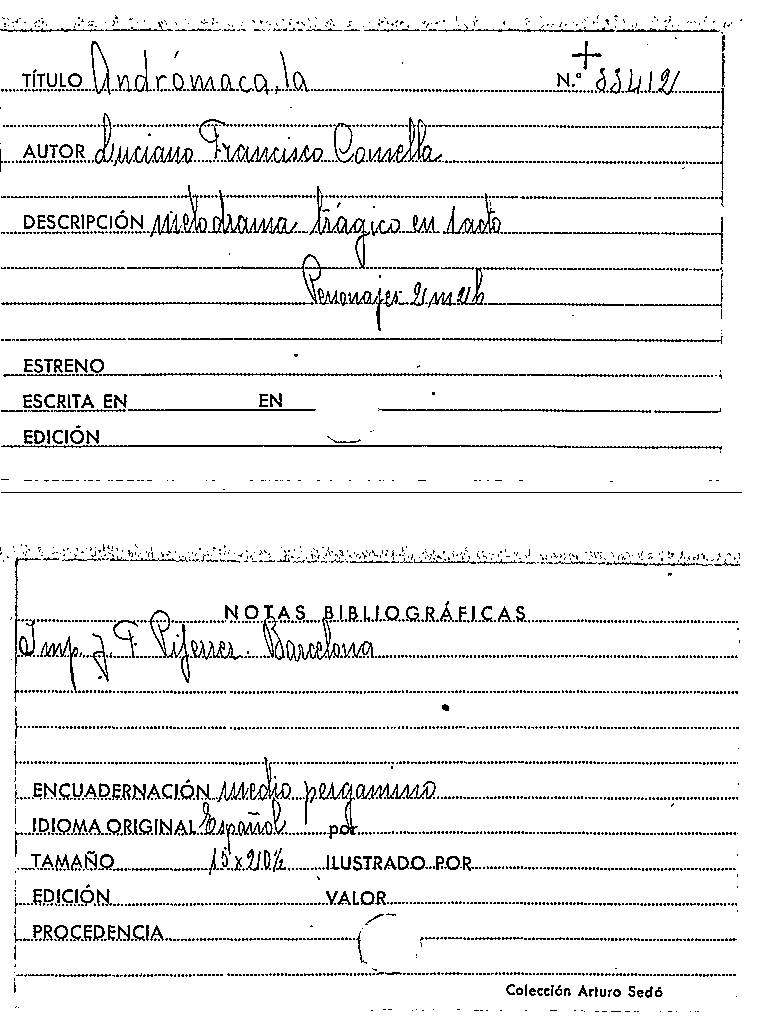 TÍTULO Andrómaca, la N.º 33412
AUTOR Luciano Francisco Comella
DESCRIPCIÓN melodrama trágico en 1 acto
Personajes 2 m 2 h
ESTRENO
ESCRITA EN EN
EDICIÓN
NOTAS BIBLIOGRÁFICAS
Imp. J. F. Piferrer. Barcelona
ENCUADERNACIÓN medio pergamino
IDIOMA ORIGINAL Español por
TAMAÑO 15 x 20½ ILUSTRADO POR
EDICIÓN VALOR
PROCEDENCIA
Colección Arturo Sedó